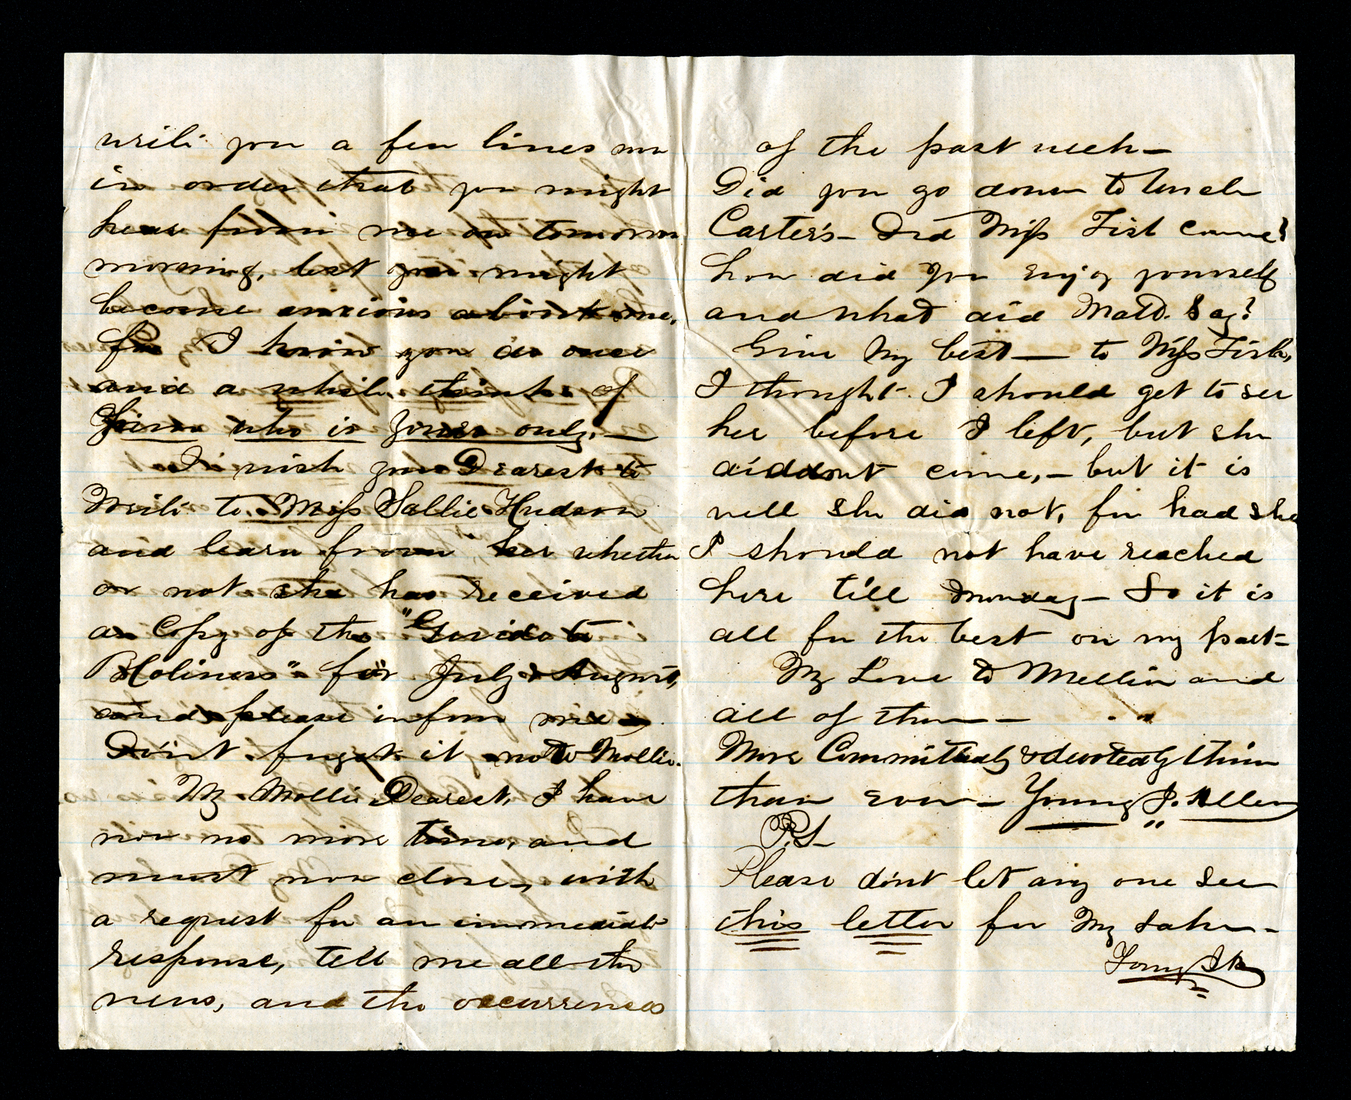 write you a few lines now
in order that you might
hear from me on tomorrow
morning, lest you might
become anxious about me,
for I know you do once
and a while think of
who is yours only,—
I wish you Dearest to
write to Miss Sallie Hudson
and learn from her whether
or not she has received
a Copy of the "Guide to
Holiness" for July & August,
and please inform me
Don't forget it now Mollie.
My Mollie Dearest, I have
now no more time, and
must now close, with
a request for an immediate
response, tell me all the
news, and the occurrences
of the past week—
Did you go down to Uncle
Carter's— Did Miss Fisk come?
how did you enjoy yourself
and what did Matt. Say?
Give My best— to Miss Fisk,
I thought I should get to see
her before I left, but she
did not come,— but it is
well she did not, for had she
I should not have reached
here till Monday— So it is
all for the best on my part—
My Love to and
all of them—
More Committedly & devotedly thine
than ever— Young J. Allen
P.S.
Please don't let any one see
this letter for My sake—
Young J.